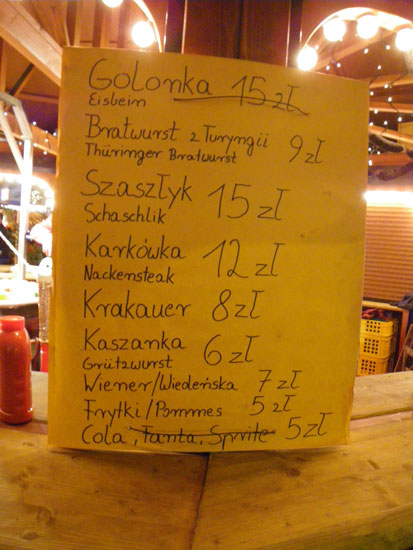 Golonka 15 zł
Eisbeim
Bratwurst z Turyngii 9 zł
Thüringer Bratwurst
Szaszłyk 15 zł
Schaschlik
Karkówka 12 zł
Nackensteak
Krakauer 8 zł
Kaszanka 6 zł
Grützwurst
Wiener/Wiedeńska 7 zł
Frytki/Pommes 5 zł
Cola, Fanta, Sprite 5 zł